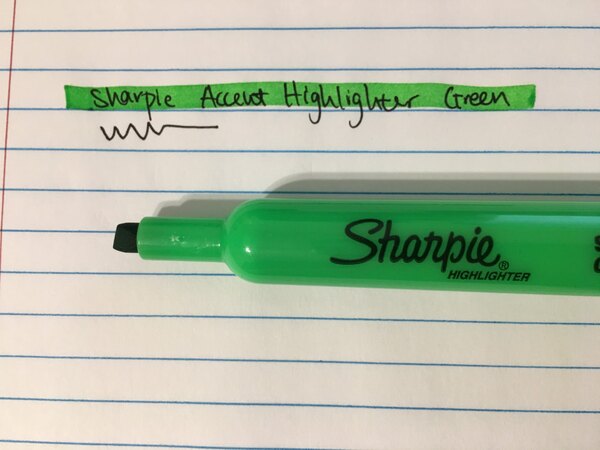 Sharpie Accent Highlighter Green
Sharpie®
HIGHLIGHTER